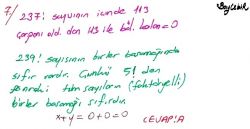 Seyfettin
7/ 237! sayısının içinde 113
çarpanı old. dan 113 ile böl. kalan = 0
239! sayısının birler basamağında
sıfır vardır. Çünkü 5! den
sonraki tüm sayıların (faktöryelli)
birler basamağı sıfırdır.
x+y = 0+0 = 0
CEVAP: A